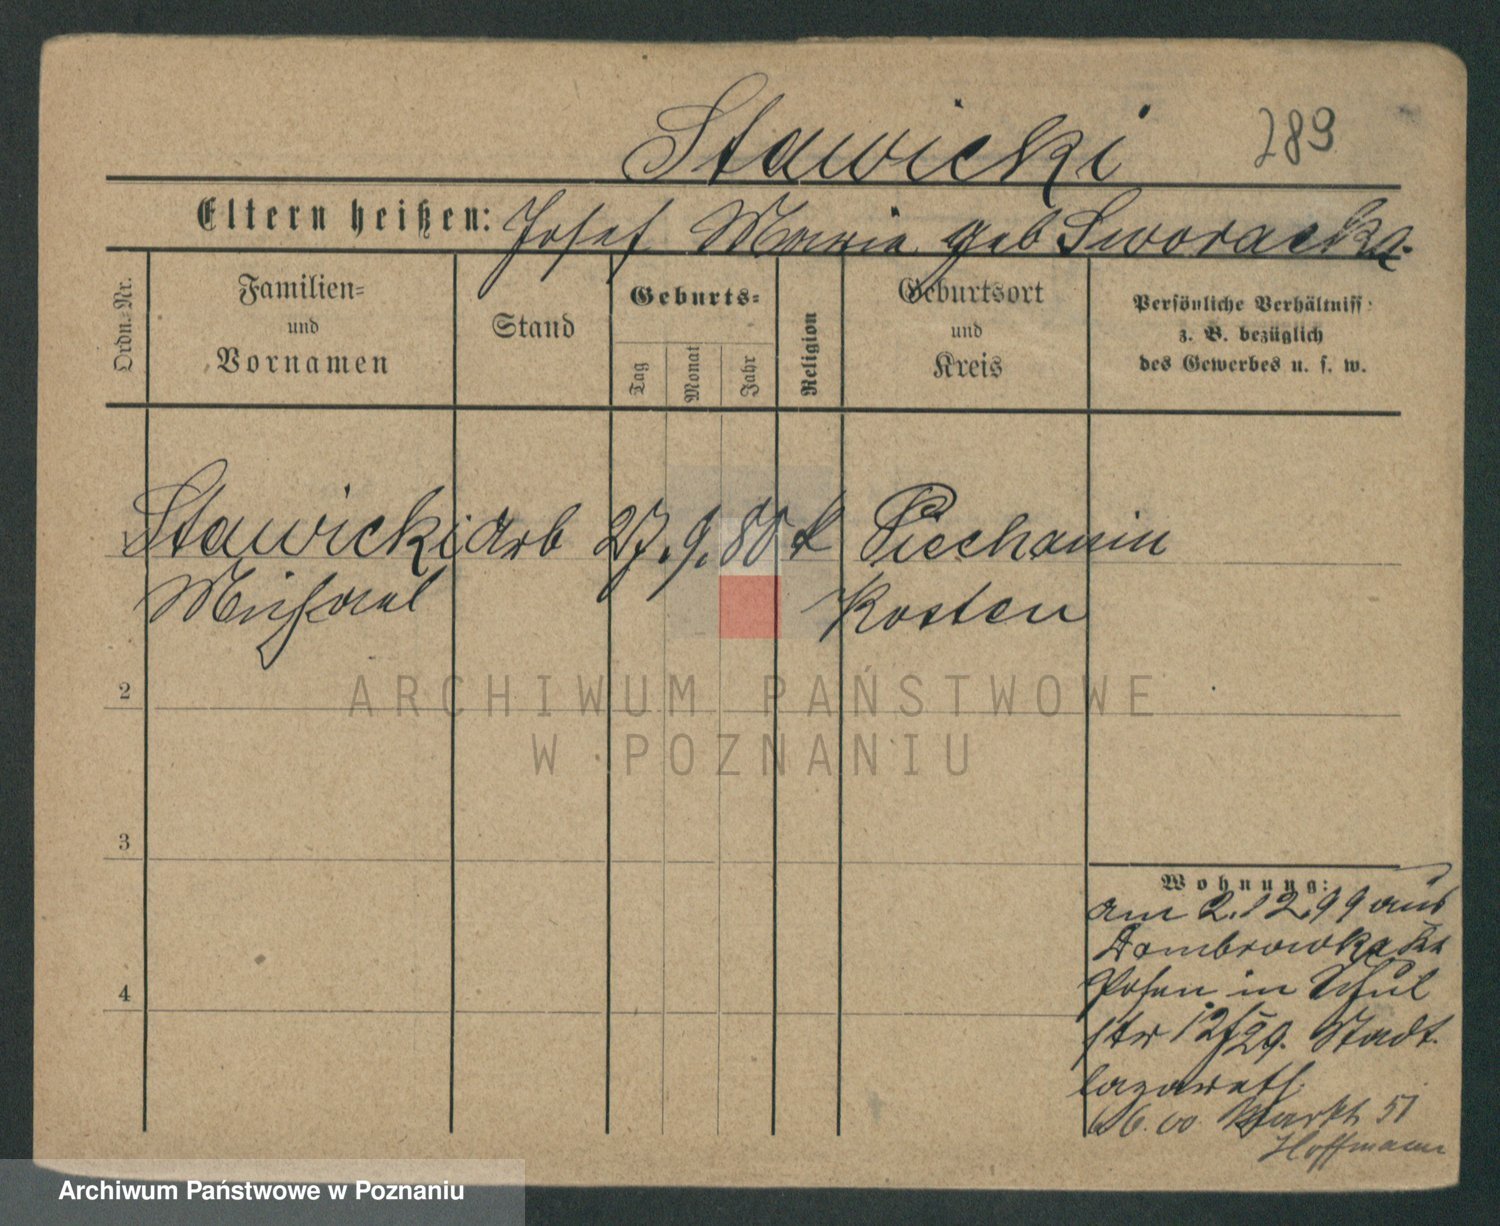 Stawicki 289
Eltern heißen: Josef Marie geb Sworacka.
Ordn.-Nr.
Familien-
und
Vornamen
Stand
Geburts-
Tag
Monat
Jahr
Religion
Geburtsort
und
Kreis
Persönliche Verhältniss
z. B. bezüglich
des Gewerbes u. s. w.
1 Stawicki arb 27. 9. 80 k Piechanin
Michael Kosten
2
ARCHIWUM PAŃSTWOWE
W POZNANIU
3
4
Wohnung:
am 2.12.99 aus
Dombrowka Kr
Posen in Schul
str 12/29. Stadt
lazareth
6.6.00 Markt 51
Hoffmann
Archiwum Państwowe w Poznaniu